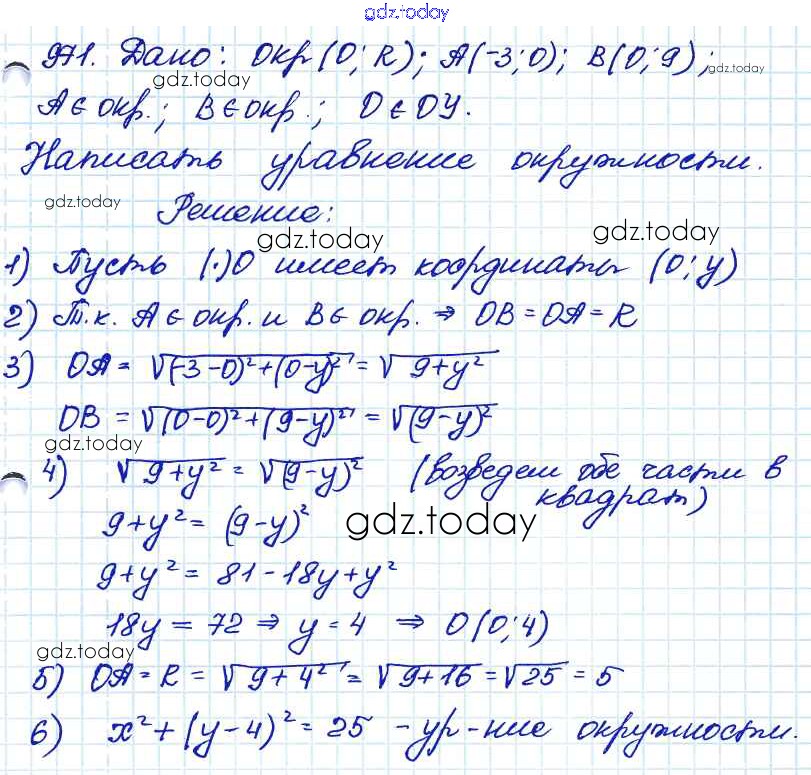 gdz.today
971. Дано: Окр(O; R); A(-3; 0); B(0; 9);
gdz.today gdz.today
A ∈ окр.; B ∈ окр.; O ∈ OY.
Написать уравнение окружности.
gdz.today Решение:
gdz.today gdz.today
1) Пусть (·)O имеет координаты (0; y)
2) Т.к. A ∈ окр. и B ∈ окр. ⇒ OB = OA = R
3) OA = √(-3-0)²+(0-y)² = √9+y²
OB = √(0-0)²+(9-y)² = √(9-y)²
gdz.today
4) √9+y² = √(9-y)² (возведем обе части в
квадрат)
9+y² = (9-y)² gdz.today
9+y² = 81-18y+y²
18y = 72 ⇒ y = 4 ⇒ O(0; 4)
gdz.today
5) OA = R = √9+4² = √9+16 = √25 = 5
6) x²+(y-4)² = 25 - ур-ние окружности.